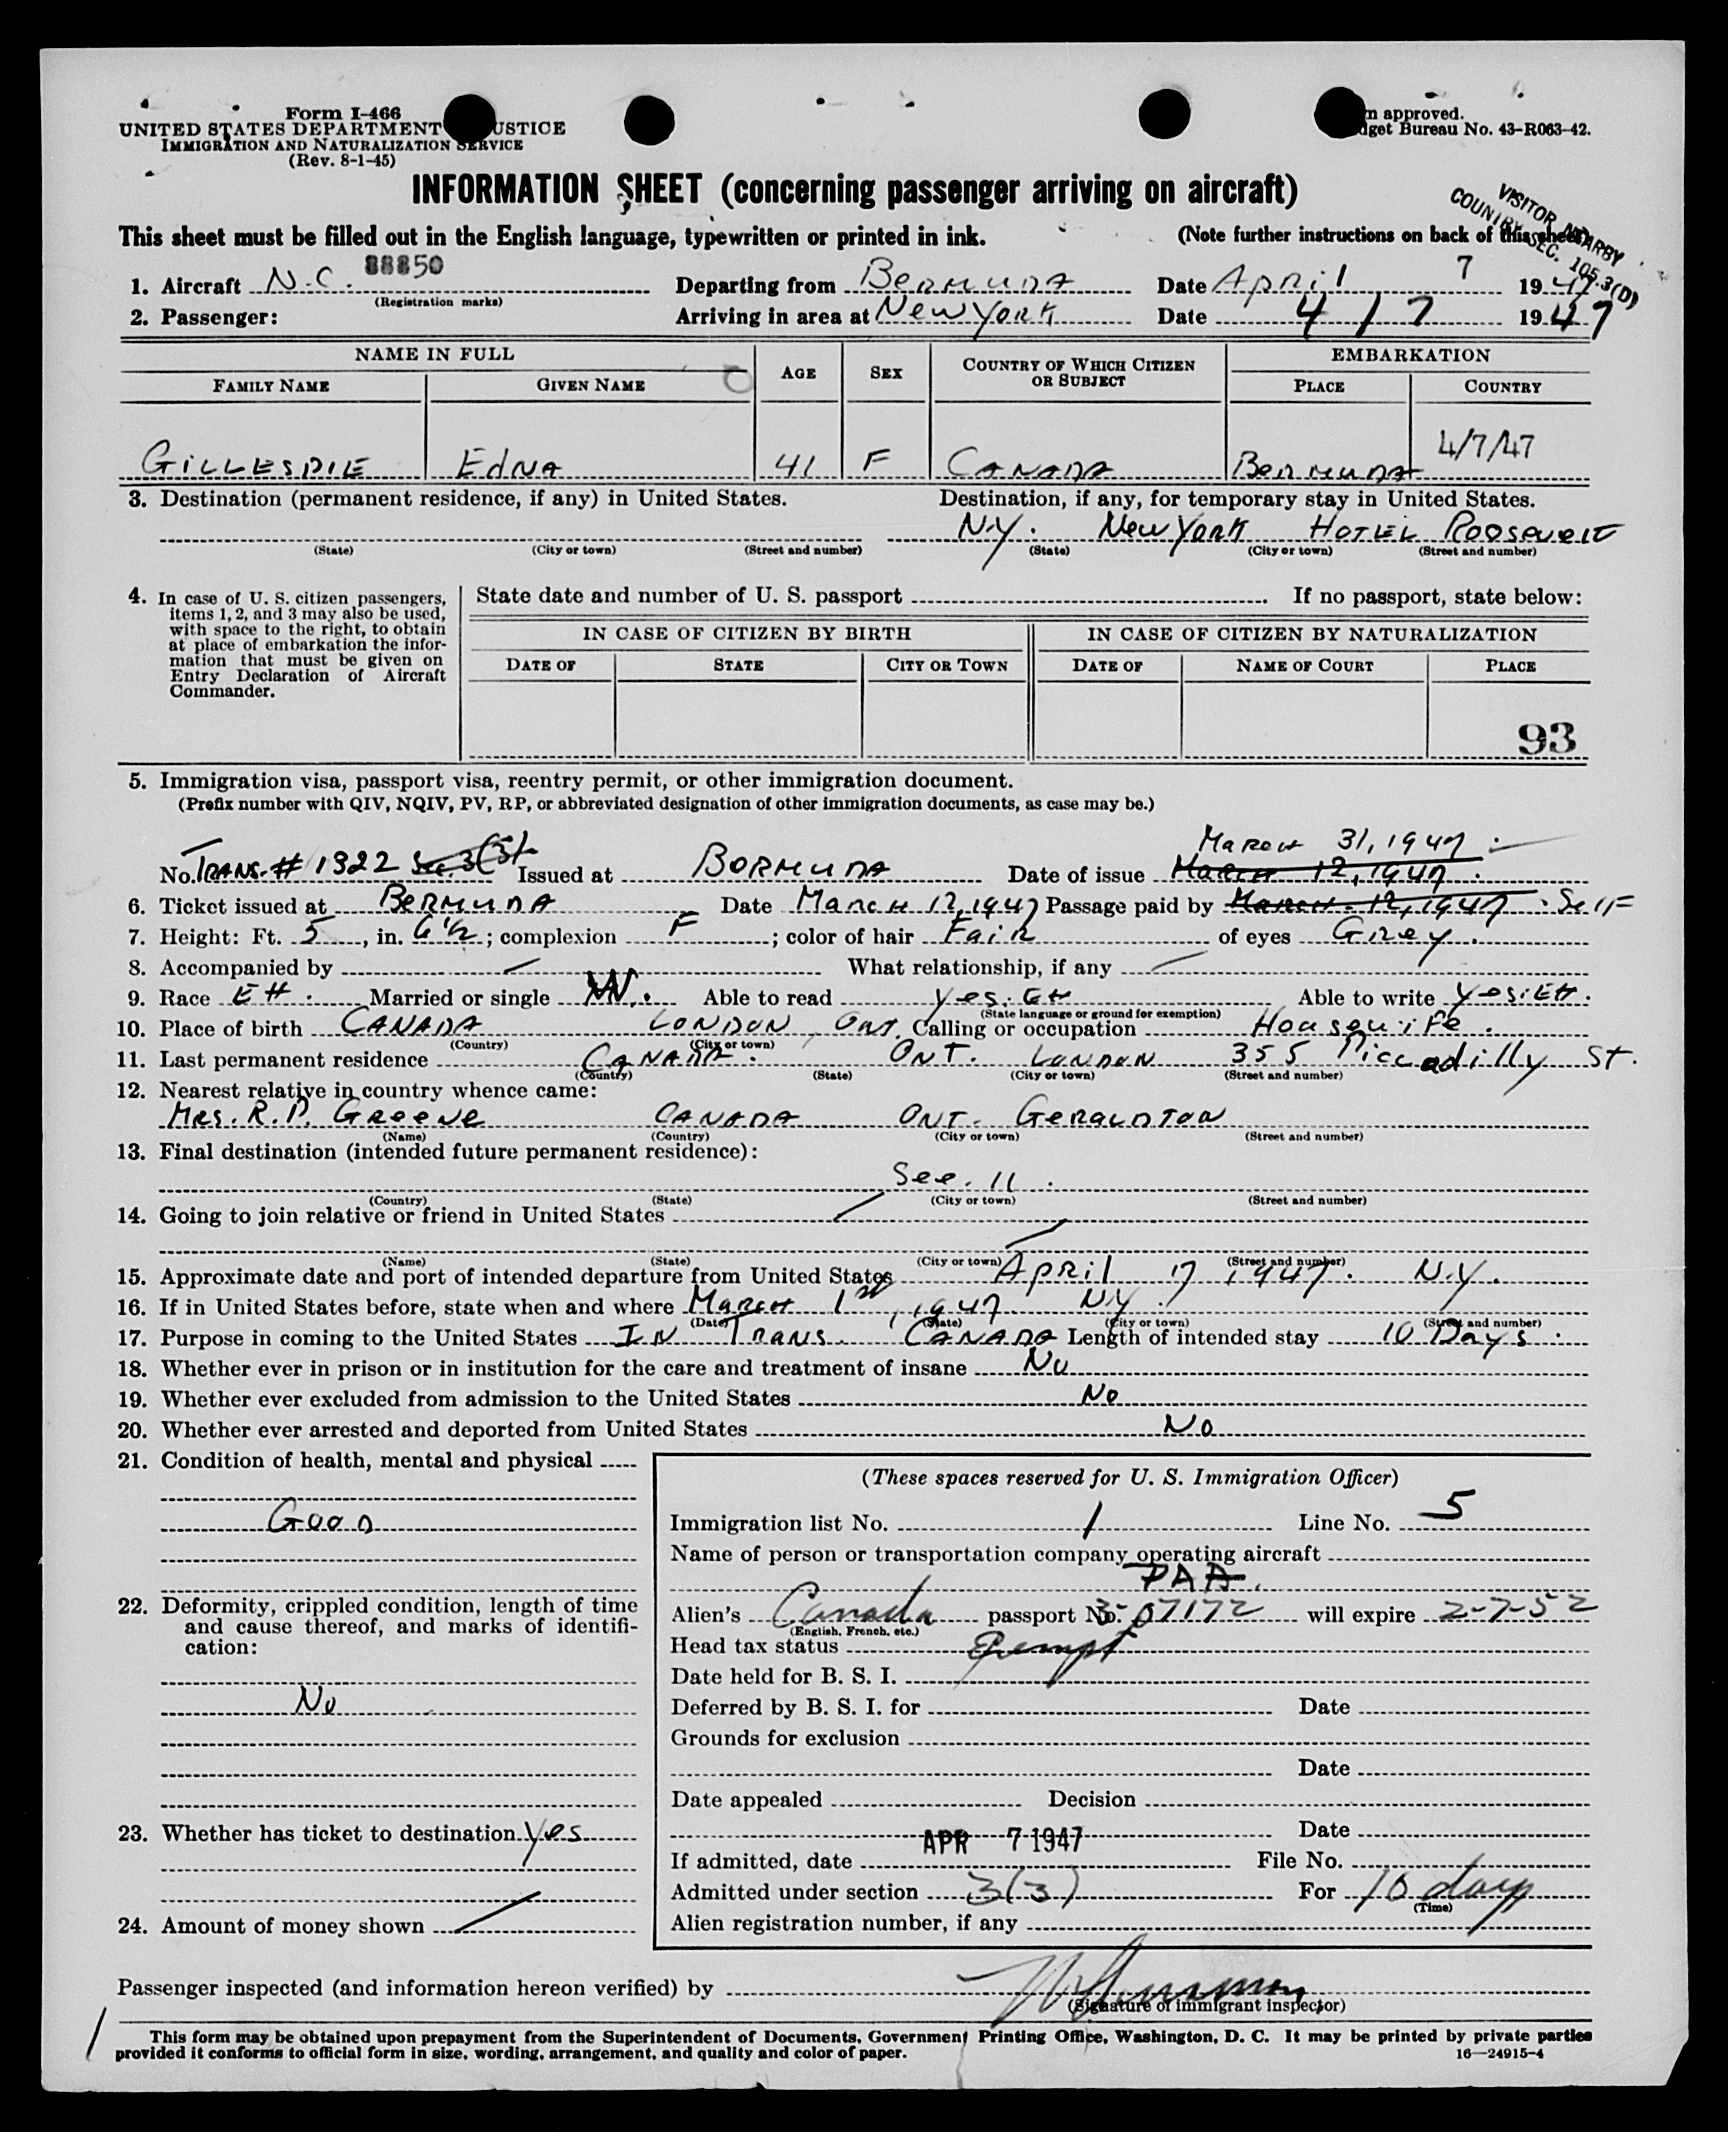 Form I-466
UNITED STATES DEPARTMENT USTICE
IMMIGRATION AND NATURALIZATION SERVICE
(Rev. 8-1-45)
m approved.
dget Bureau No. 43-R063-42.
INFORMATION SHEET (concerning passenger arriving on aircraft)
VISITOR NEARBY
COUNTRY SEC. 105.3(D)
This sheet must be filled out in the English language, typewritten or printed in ink. (Note further instructions on back of this sheet)
1. Aircraft N.C. 88850 Departing from BERMUDA Date April 7 1947
(Registration marks)
2. Passenger: Arriving in area at New York Date 4/7 1947
NAME IN FULL AGE SEX COUNTRY OF WHICH CITIZEN OR SUBJECT EMBARKATION
FAMILY NAME GIVEN NAME PLACE COUNTRY
GILLESPIE EDNA 41 F CANADA BERMUDA 4/7/47
3. Destination (permanent residence, if any) in United States. Destination, if any, for temporary stay in United States.
N.Y. New York HOTEL Roosevelt
(State) (City or town) (Street and number) (State) (City or town) (Street and number)
4. In case of U. S. citizen passengers, items 1, 2, and 3 may also be used, with space to the right, to obtain at place of embarkation the information that must be given on Entry Declaration of Aircraft Commander.
State date and number of U. S. passport If no passport, state below:
IN CASE OF CITIZEN BY BIRTH IN CASE OF CITIZEN BY NATURALIZATION
DATE OF STATE CITY OR TOWN DATE OF NAME OF COURT PLACE
93
5. Immigration visa, passport visa, reentry permit, or other immigration document.
(Prefix number with QIV, NQIV, PV, RP, or abbreviated designation of other immigration documents, as case may be.)
March 31, 1947
No. TRANS. # 1322 Sec. 3(3) Issued at BORMUDA Date of issue March 12, 1947.
6. Ticket issued at BERMUDA Date March 12, 1947 Passage paid by March 12, 1947. Self
7. Height: Ft. 5, in. 6 1/2; complexion F; color of hair Fair of eyes Grey.
8. Accompanied by What relationship, if any
9. Race EH. Married or single W. Able to read yes. EH Able to write yes. EH.
(State language or ground for exemption)
10. Place of birth CANADA LONDON, Ont. Calling or occupation Housewife.
(Country) (City or town)
11. Last permanent residence CANADA. ONT. LONDON 355 Piccadilly St.
(Country) (State) (City or town) (Street and number)
12. Nearest relative in country whence came:
Mrs. R. P. Greene CANADA ONT. GERALDTON
(Name) (Country) (City or town) (Street and number)
13. Final destination (intended future permanent residence):
See. 11.
(Country) (State) (City or town) (Street and number)
14. Going to join relative or friend in United States
(Name) (State) (City or town) (Street and number)
15. Approximate date and port of intended departure from United States April 17, 1947. N.Y.
16. If in United States before, state when and where March 1st, 1947 NY.
(Date) (State) (City or town) (Street and number)
17. Purpose in coming to the United States IN TRANS. CANADA Length of intended stay 10 Days.
18. Whether ever in prison or in institution for the care and treatment of insane No
19. Whether ever excluded from admission to the United States No
20. Whether ever arrested and deported from United States No
21. Condition of health, mental and physical
Good
22. Deformity, crippled condition, length of time and cause thereof, and marks of identification:
No
23. Whether has ticket to destination Yes
24. Amount of money shown
(These spaces reserved for U. S. Immigration Officer)
Immigration list No. 1 Line No. 5
Name of person or transportation company operating aircraft
PAA.
Alien's Canada passport No. 3-07172 will expire 2-7-52
(English, French, etc.)
Head tax status Exempt
Date held for B. S. I.
Deferred by B. S. I. for Date
Grounds for exclusion
Date
Date appealed Decision
Date
If admitted, date APR 7 1947 File No.
Admitted under section 3(3) For 10 days
(Time)
Alien registration number, if any
Passenger inspected (and information hereon verified) by
(Signature of immigrant inspector)
This form may be obtained upon prepayment from the Superintendent of Documents, Government Printing Office, Washington, D. C. It may be printed by private parties
provided it conforms to official form in size, wording, arrangement, and quality and color of paper.
16—24915-4